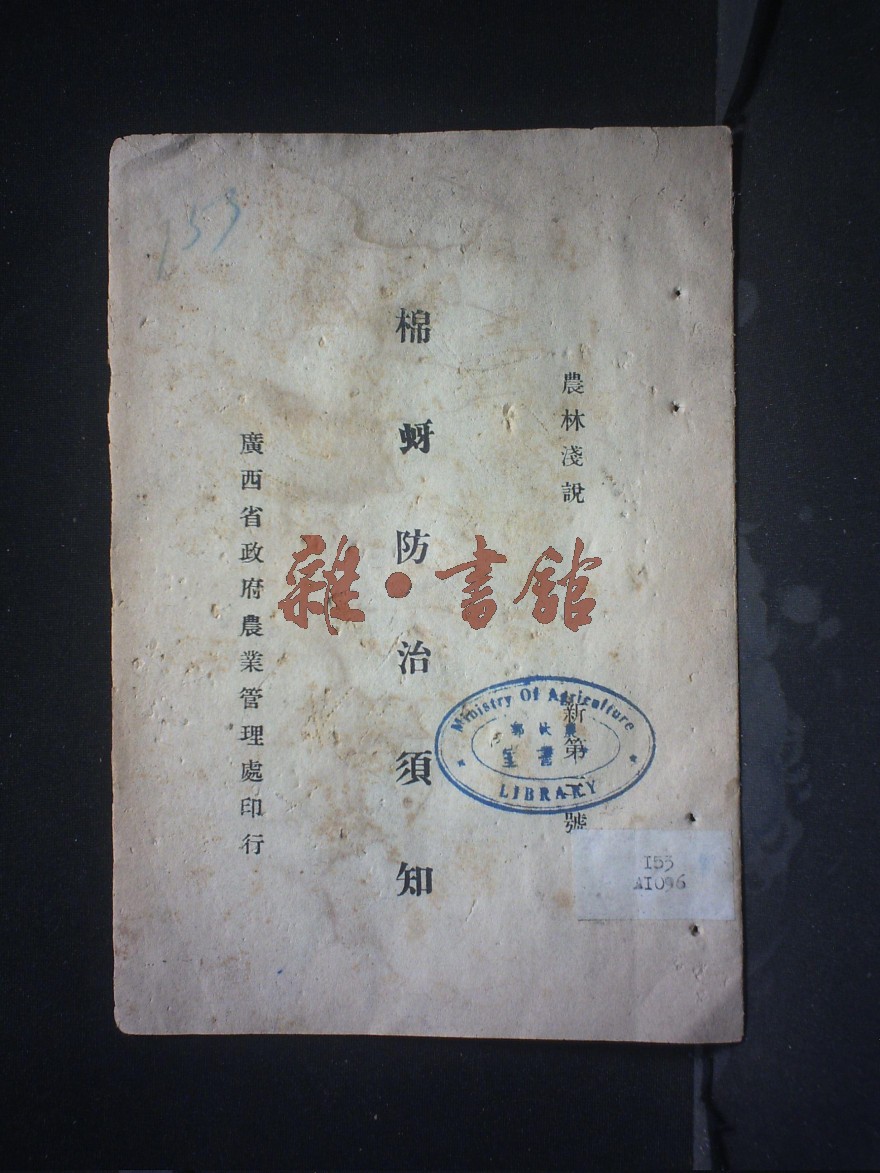 農林淺說
新第 號
棉蚜防治須知
廣西省政府農業管理處印行
雜·書館
Ministry Of Agriculture
LIBRARY
I53
153